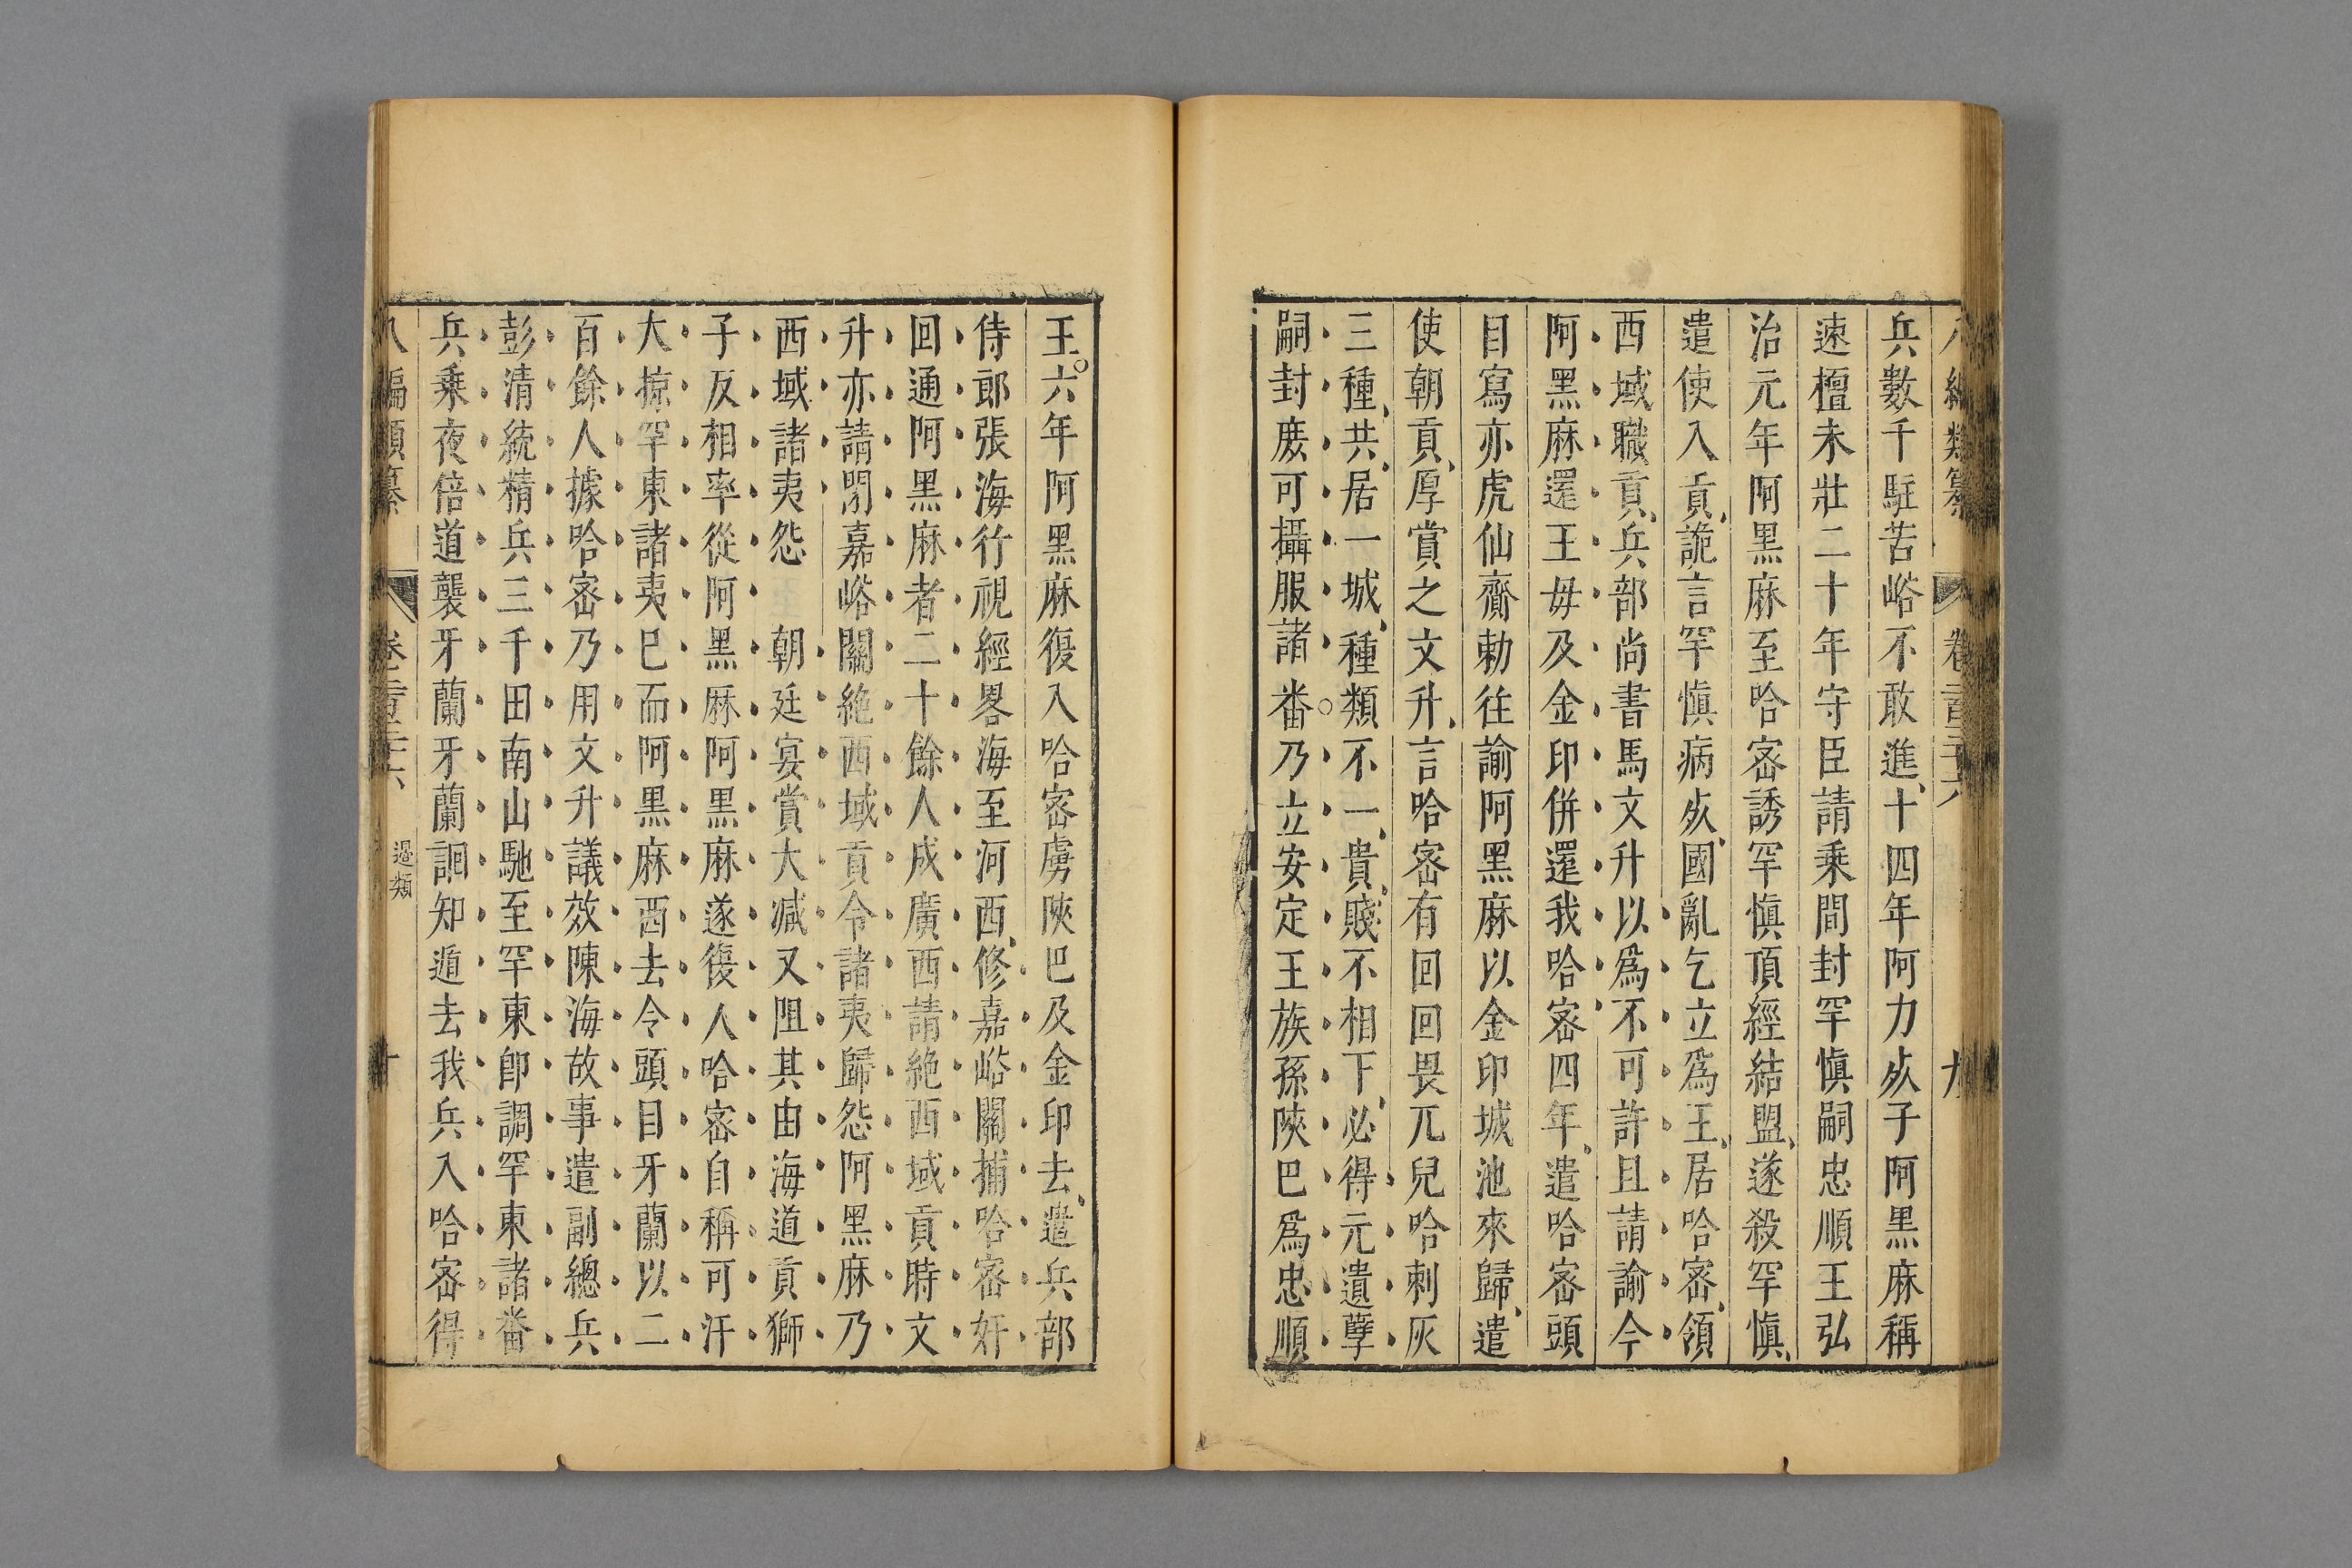 兵數千駐苦峪不敢進、十四年阿力歿子阿黑麻稱
速檀未壯二十年守臣請乘間封罕慎嗣忠順王弘
治元年阿黑麻至哈密誘罕慎頂經結盟、遂殺罕慎、
遣使入貢、詭言罕慎病歿、國亂乞立爲王、居哈密、領
西域職貢、兵部尚書馬文升以爲不可許且請諭今
阿黑麻還王毋及金印併還我哈密四年、遣哈密頭
目寫亦虎仙齎勅往諭阿黑麻以金印城池來歸、遣
使朝貢、厚賞之文升、言哈密有回回畏兀兒哈剌灰
三種、共、居一城、種類不一、貴、賤不相下、必得元遺孽
嗣封庶可攝服諸番乃立安定王族孫陝巴爲忠順
王。六年阿黑麻復入哈密虜陝巴及金印去、遣兵部
侍郎張海行視經畧海至河西、修嘉峪關捕哈密奸
回通阿黑麻者二十餘人戍廣西請絶西域貢時文
升亦請閉嘉峪關絶西域貢令諸夷歸怨阿黑麻乃
西域諸夷怨 朝廷宴賞大减又阻其由海道貢獅
子反相率從阿黑麻阿黑麻遂復入哈密自稱可汗
大掠罕東諸夷巳而阿黑麻西去令頭目牙蘭以二
百餘人據哈密乃用文升議效陳海故事遣副總兵
彭清統精兵三千田南山馳至罕東卽調罕東諸番
兵乘夜倍道襲牙蘭牙蘭詗知遁去我兵入哈密得
八編類纂 卷二百三十六 邊類 十